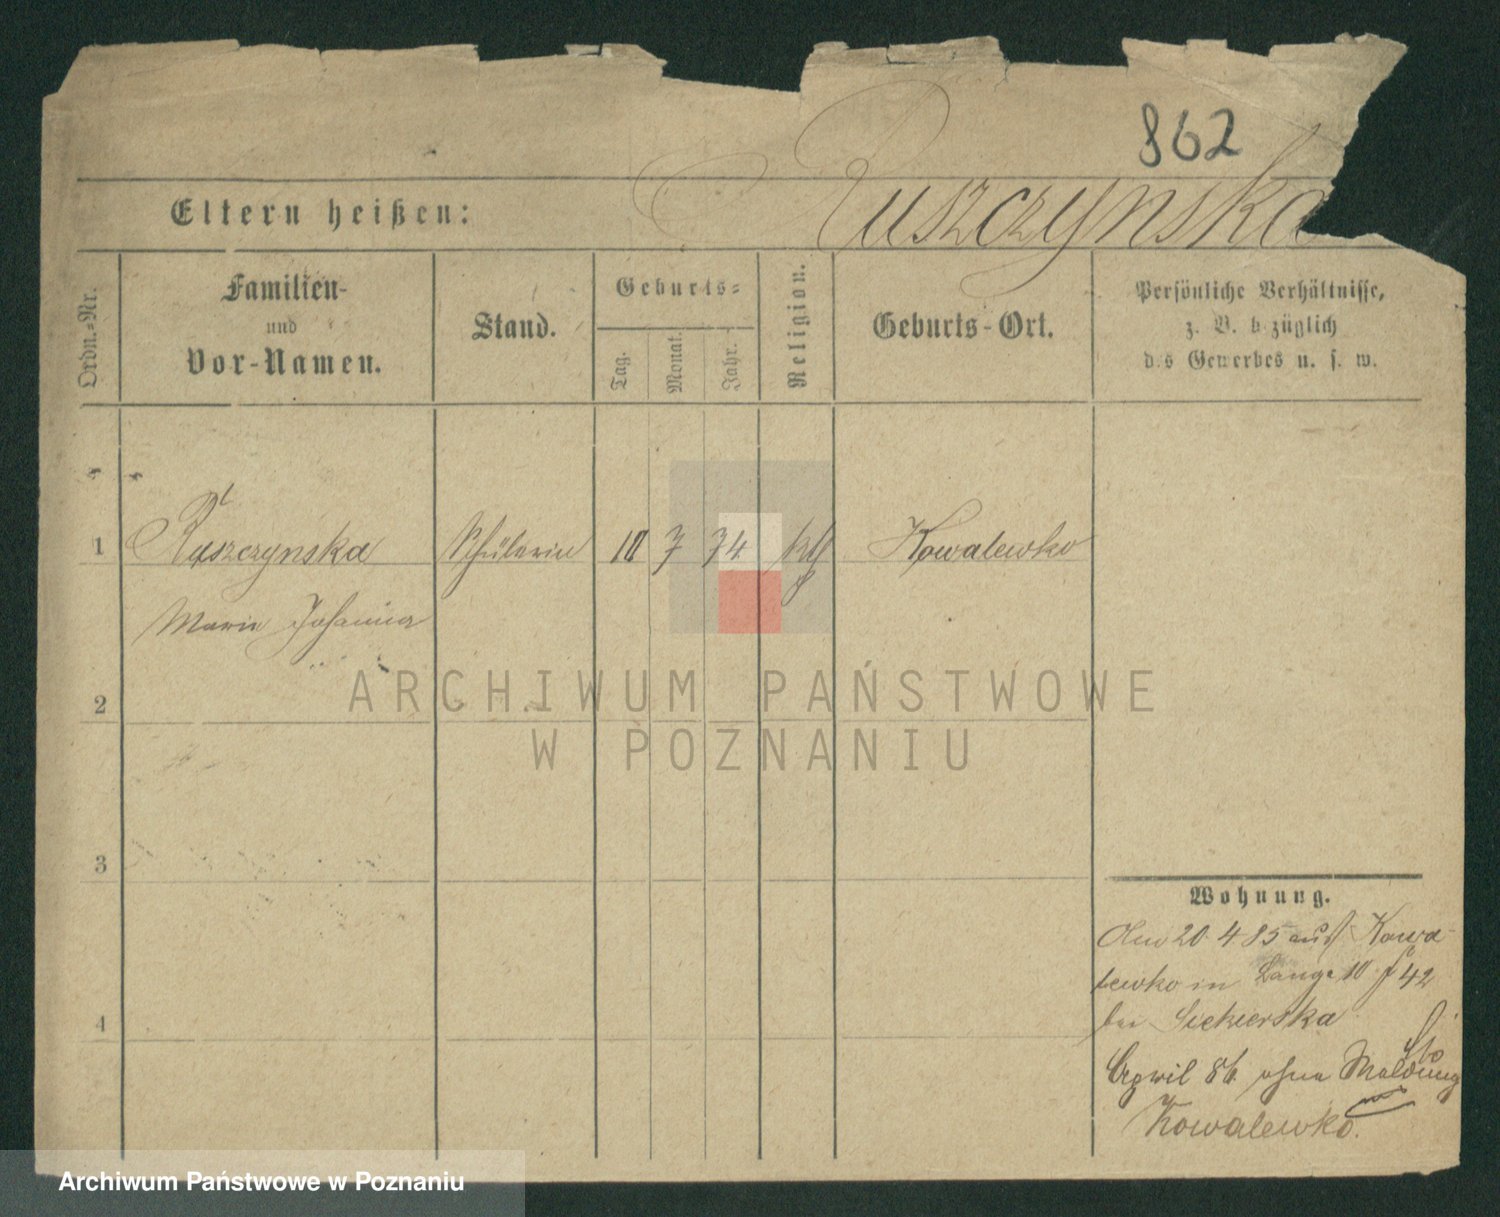 862
Ruszczynska
Eltern heißen:
Ordn.=Nr.
Familien-
und
Vor-Namen.
Stand.
Geburts=
Tag.
Monat.
Jahr.
Religion.
Geburts-Ort.
Persönliche Verhältnisse,
z. B. bezüglich
des Gewerbes u. s. w.
1
Ruszczynska
Schülerin
7
74
kth
Kowalewko
Marie Johanna
2
3
4
Wohnung.
Am 20 4 85 aus Kowa-
lewko in Lange 10 f 42
bei Siekierska
April 86 ohne Meldung
Kowalewko.
ARCHIWUM PAŃSTWOWE
W POZNANIU
Archiwum Państwowe w Poznaniu